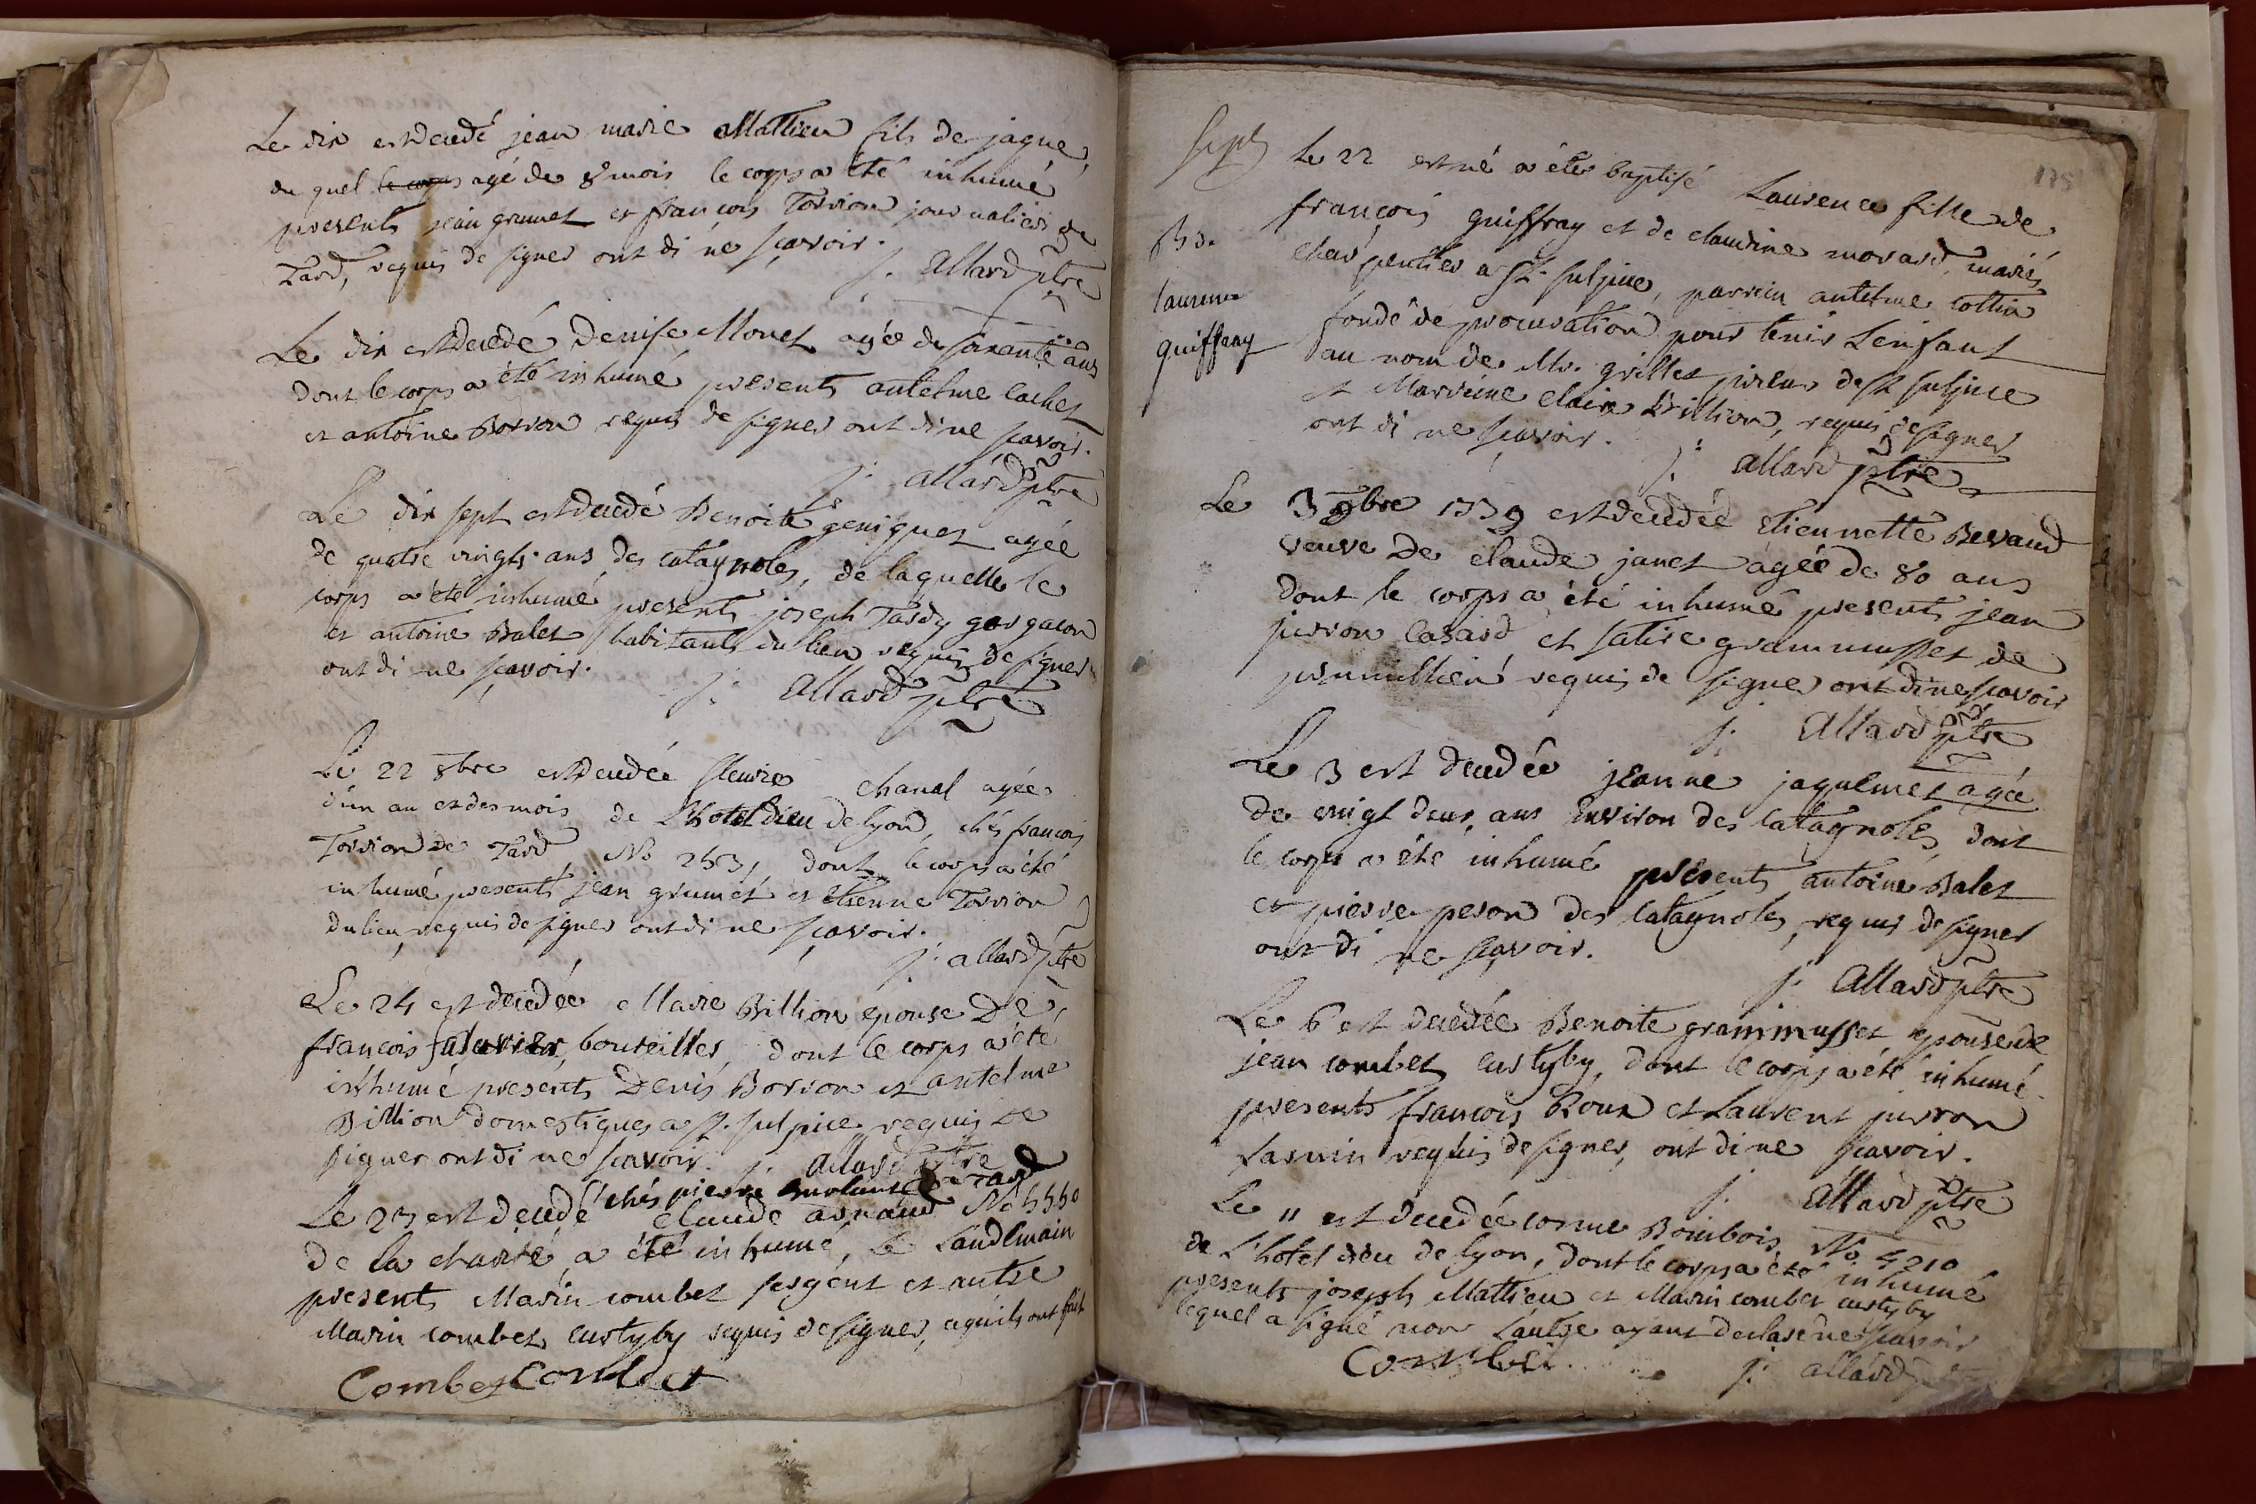 Le dix est decedé jean marie Mathieu fils de jaque,
du quel le corps agé de 8 mois le corps a été inhumé
presents jean grumet et françois Torrion journaliers de
Tard, requis de signer ont di ne sçavoir.
j. Allard ptre
Le dix est decedé Denise Monet agée de soixante ans
dont le corps a été inhumé presents antelme cachet
et antoine Borron requis de signer ont di ne sçavoir.
j. allard ptre
Le dix sept est decedé Benoite geniquet agée
de quatre vingts ans des catagnoles, de laquelle le
corps a été inhumé presents joseph Tardy
et antoine Balet habitants du lieu requis de signer
ont di ne sçavoir.
j. Allard ptre
Le 22 8bre est decedée fleurie chanal agée
d'un an et des mois de L'hotel dieu de lyon, chés francois
Torrion de Tard, No 253, dont le corps a été
inhumé presents jean grumet et Etienne Torrion
du lieu, requis de signer ont di ne sçavoir.
j. allard ptre
Le 24 est decedée Marie Billion epouse De
francois bouteilles, dont le corps a été
inhumé presents Denis Borron et antelme
Billion domestiques a St. sulpice requis de
signer ont di ne sçavoir. j. allard ptre
chés pierre a Tard
Le 25 est decedé claude arnaud No 5550
de la charité, a été inhumé, Le Landemain
presents Marin combet sergent et autre
Marin combet custyby requis de signer, ce qu'ils ont fait
Combet Combet
175
sept
Le 22 est né a été baptisé Laurence fille de
françois guiffray et de claudine morard, mariés
charpentier a St. sulpice, parrein antelme cottin
fondé de procuration pour tenir L'enfant
au nom de Mr. grillet prieur de St sulpice
et Marreine claire Billion, requis de signer
ont di ne sçavoir.
j. allard ptre
laurence
guiffray
Le 3 9bre 1739 est decedée Etiennette Bevand
veuve De claude janet agée de 80 ans
dont le corps a été inhumé presents jean
pirron casard et satire grammusset de
premillieu requis de signer ont di ne sçavoir
j. Allard ptre
Le 3 est decedée jeanne jaquemet agée
de vingt deux ans Environ des catagnoles, dont
le corps a été inhumé presents antoine Balet
et pierre peson des catagnoles, requis de signer
ont di ne sçavoir.
j. Allard ptre
Le 6 est decedée Benoite grammusset epouse de
jean combet custyby, dont le corps a été inhumé
presents francois Roux et Laurent pirron
requis de signer, ont di ne sçavoir.
j. Allard ptre
Le 11 est decedée corme Bombois No 4210
de L'hotel dieu de lyon, dont le corps a été inhumé
presents joseph Mathieu et Marin combet custyby
lequel a signé non L'autre ayant declaré ne sçavoir
Combet.
j. allard